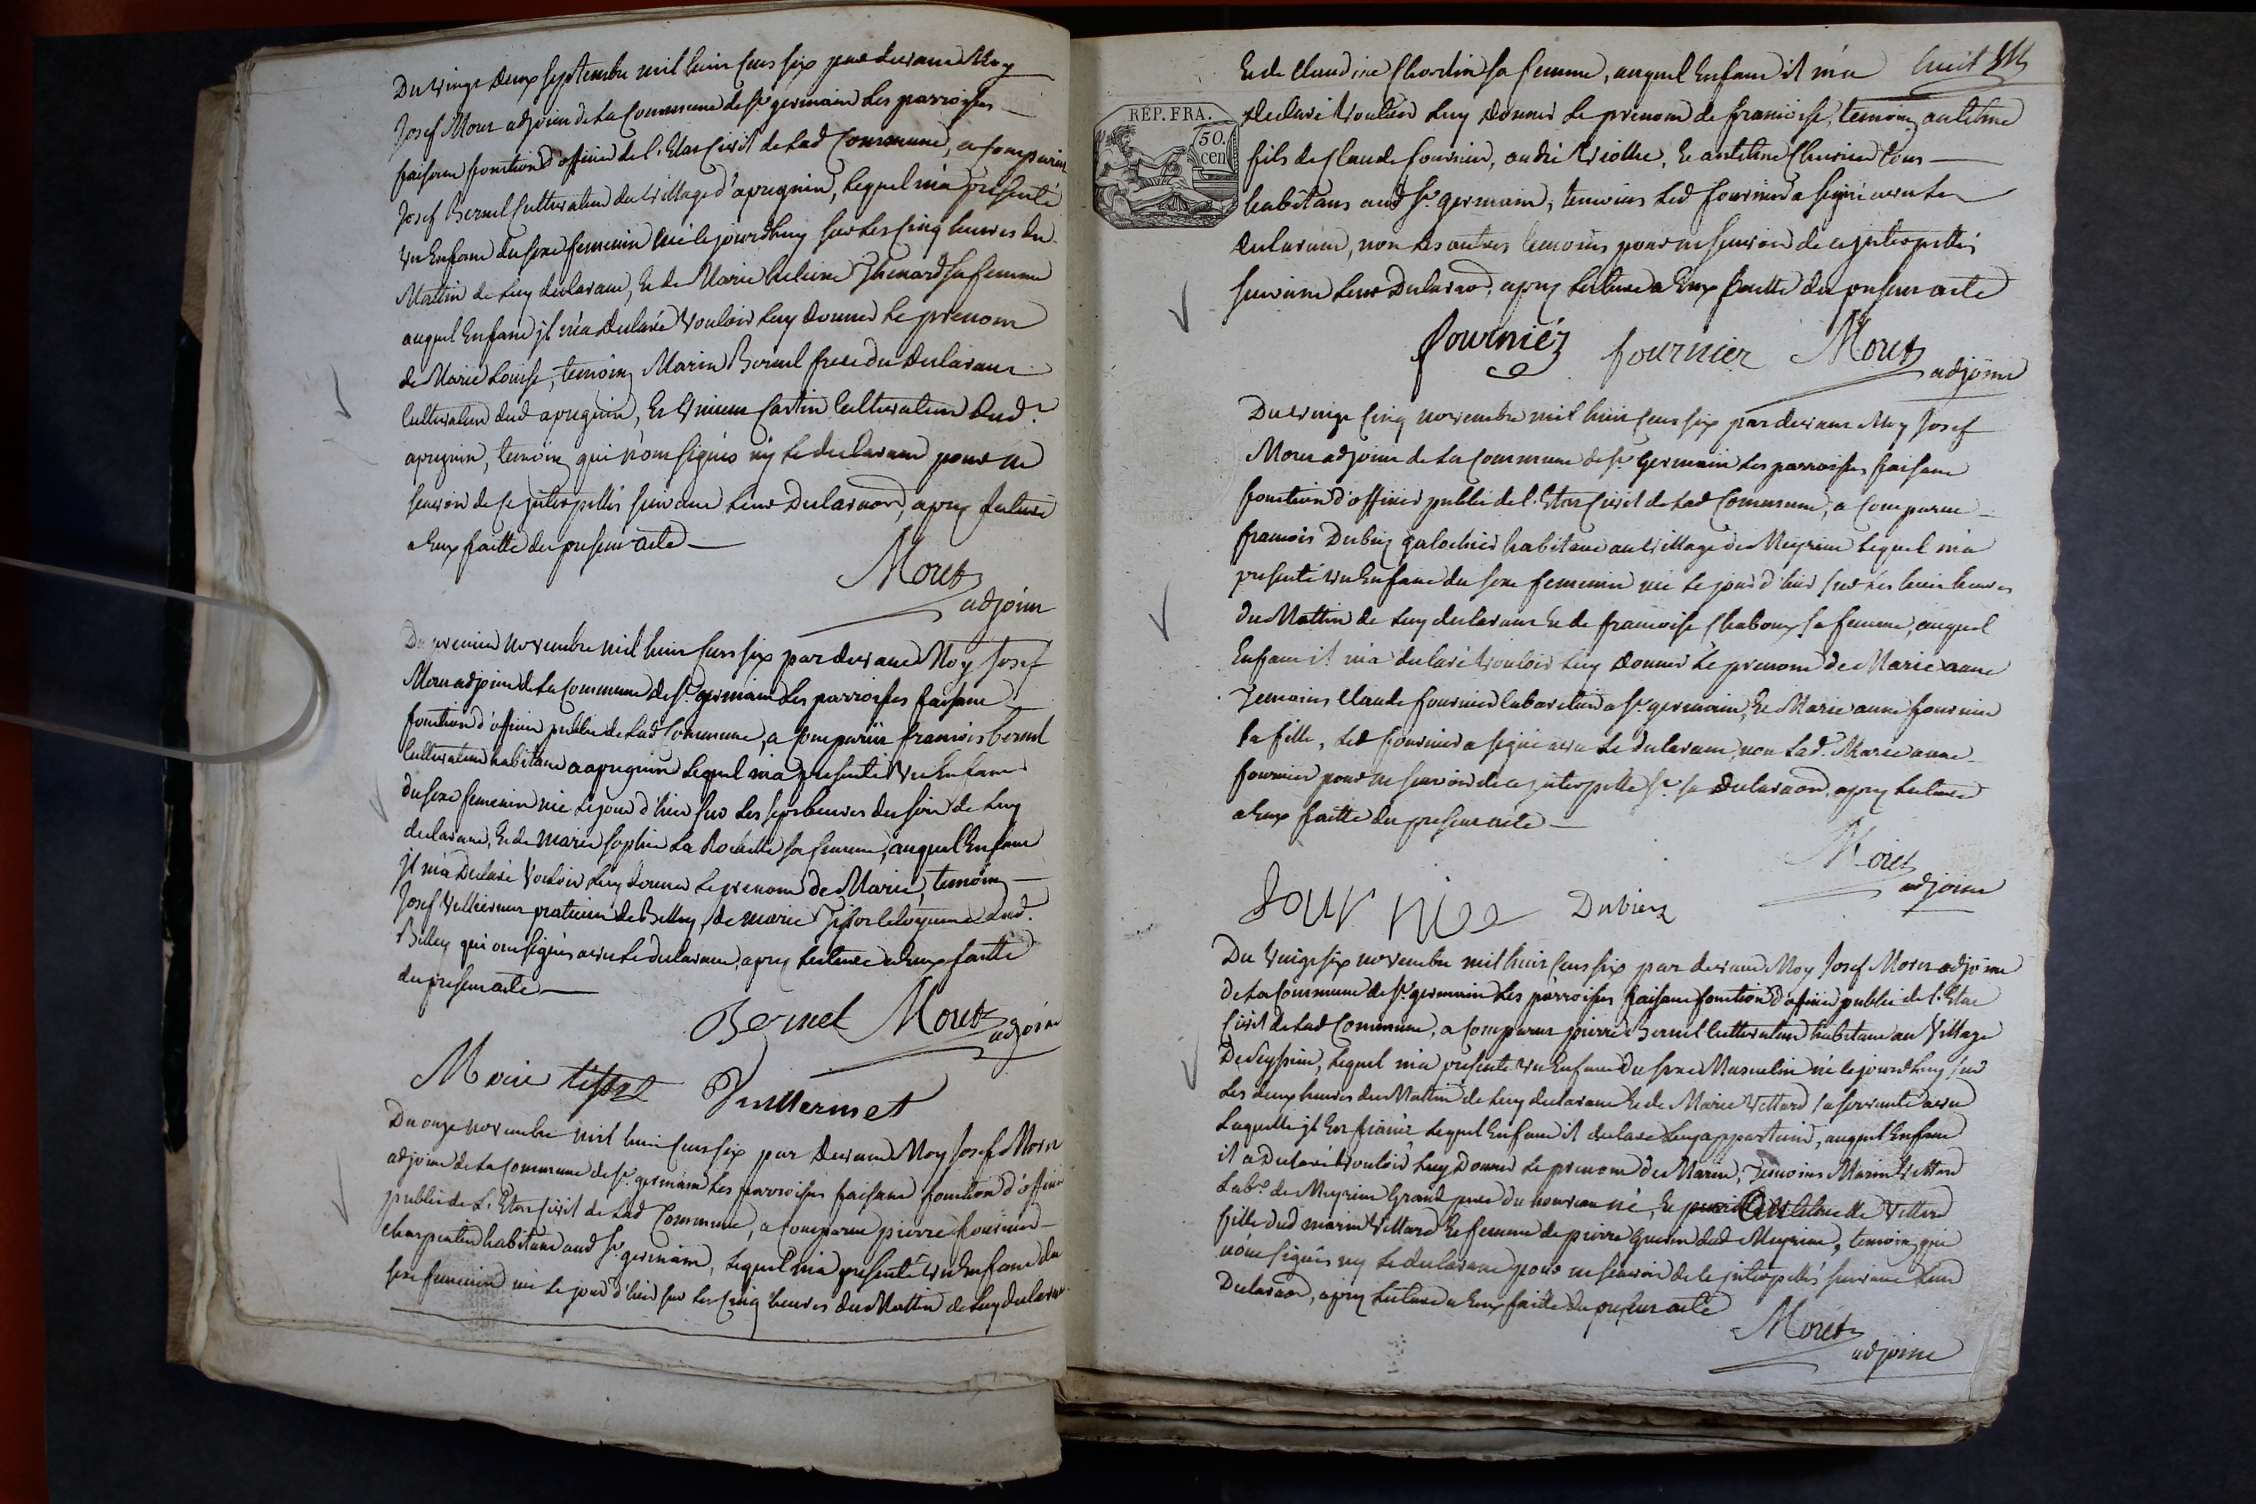 Du vingt deux septembre mil huit cens six par devant Moy
Josef Moret adjoint de La Commune de St germain Les parroisses
faisant fonction d'officier de l'Etat Civil de Lad Commune, a comparu
Josef Bernel Cultivateur du village d'apregnin, Lequel m'a présenté
un Enfant du sexe feminin né le jourdhuy sur Les Cinq heures du
Mattin de Luy declarant, Et de Marie heleine Thenard sa femme
auquel Enfant jl m'a declaré vouloir Luy donner Le prenom
de Marie Louise, temoins Marin Bernel frere du declarant
Cultivateur dud apregnin, Et Cartin Cultivateur dud.
apregnin, temoins qui n'ont signés ny Le declarant pour ne
scavoir de ce jnterpellés suivant Leur Declaraon, apres Lecture
a Eux faitte du present acte
Moret
adjoint
Du premier novembre mil huit Cens six par devant Moy Josef
Moret adjoint de La Commune de St germain Les parroisses faisant
fonction d'officier public de Lad Commune, a Comparu francois bernel
Cultivateur habitant a apregnin Lequel m'a presenté un Enfant
du sexe feminin né Le jour d'hier sur Les sept heures du soir de Luy
declarant, Et de marie sophie La Rochette sa femme, auquel Enfant
jl m'a Declaré Vouloir Luy donner Le prenom de Marie, temoins
Josef Vulliermet praticien de Belley, Et marie Tissot Citoyenne dud.
Belley qui ont signés avec Le declarant, apres Lecture a Eux faitte
du present acte
Bernel Moret
adjoint
Marie tissot Vuillermet
Du onze novembre mil huit Cens six par devant Moy Josef Moret
adjoint de La Commune de St germain Les parroisses faisant fonction d'officier
public de L'Etat Civil de Lad Commune, a Comparu pierre fournier
charpentier habitant aud St germain, Lequel m'a presenté un Enfant du
sexe feminin né Le jour d'hier sur Les Cinq heures du Mattin de Luy declarant
huit
Et de Claudine Chardin sa femme, auquel Enfant il m'a
declaré vouloir Luy donner Le prenom de francoise, temoins antelme
fils de Claude fournier, andré Et antelme tous
habitans aud St germain, temoins Led fournier a signé avec Le
declarant, non Les autres temoins pour ne scavoir de ce jnterpellés
suivant Leur Declaraon, apres Lecture a Eux faitte du present acte
REP. FRA.
50.
cen
fourniér fournier Moret
adjoint
Du vingt Cinq novembre mil huit Cens six par devant Moy Josef
Moret adjoint de La Commune de St germain Les parroisses faisant
fonction d'officier public de l'Etat Civil de Lad Commune, a Comparu
francois Dubiez galochier habitant au village de Meyrieu Lequel m'a
presenté un Enfant du sexe feminin né Le jour d'hier sur Les huit heures
du Mattin de Luy declarant Et de francoise Chaboux sa femme, auquel
Enfant il m'a declaré vouloir Luy donner Le prenom de Marie anne
Temoins Claude fournier Cabaretier a St germain, Et Marie anne fournier
sa fille, Led fournier a signé avec Le declarant, non Lad. Marie anne
fournier pour ne scavoir de ce jnterpellé St sa Declaraon, apres Lecture
a Eux faitte du present acte
Moret
adjoint
fournier Dubiez
Du vingt six novembre mil huit Cens six par devant Moy Josef Moret adjoint
de La Commune de St germain Les parroisses faisant fonction d'officier public de l'Etat
Civil de Lad Commune, a Comparu pierre Bernel Cultivateur habitant au Village
De Seyssieu, Lequel m'a presenté un Enfant Du sexe Masculin né le jourdhuy sur
Les deux heures du Mattin de Luy declarant Et de Marie Vettard sa servante avec
Laquelle jl Est fiancé Lequel Enfant il declare Luy appartenir, auquel Enfant
il a Declaré vouloir Luy Donner Le prenom de Marin, Temoins Marin Vettard
Labr. de Meyrieu Grand pere du nouveau né, Et Antelmette Vettard
fille dud marin Vettard Et femme de pierre Guerin dud Meyrieu, temoins qui
n'ont signés ny Le declarant pour ne scavoir de ce jnterpellés suivant Leur
Declaraon, apres Lecture a Eux faitte du present acte
Moret
adjoint